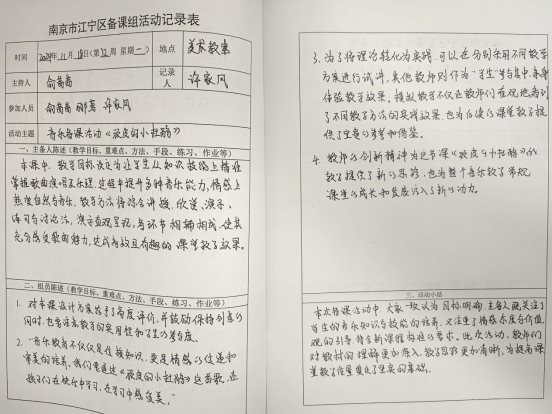 南京市江宁区备课组活动记录表
时间 2024年11月18日(第12周 星期一) 地点 美术教室
主持人 俞菁菁 记录人 许家凤
参加人员 俞菁菁 许家凤
活动主题 音乐备课活动《夜夜的小杜鹃》
一、主备人陈述(教学目标、重难点、方法、手段、练习、作业等)
本课中,教学目标设定为让学生从知识技能上精准
掌握歌曲演唱及乐理,过程中提升多种音乐能力,情感上
热爱自然与音乐。教学方法将综合讲授、欣赏、演示、
练习与讨论法,演示直观呈现,各环节相辅相成,使其
充分感受歌曲魅力,达成高效且有趣的课堂教学效果。
二、组员陈述(教学目标、重难点、方法、手段、练习、作业等)
1. 对本课设计方案给予了高度评价,并鼓励保持创意的
同时,也要注意教学的实用性和学生的参与度。
2. "音乐教育不仅仅是传授知识,更是情感的传递和
审美的培养,我们要通过《 的小杜鹃》这首歌,让
孩子们在快乐中学习,在学习中感受美。"
3. 为了将理论转化为实践,可以在分别采用不同教学
方案进行试讲,其他教师则作为"学生"参与其中,亲身
体验教学效果。模拟教学不仅让教师们直观地看到
了不同教学方法的实践效果,也为后续的课堂教学提
供了宝贵的参考和借鉴。
4. 教师的创新精神为这节课《 的小杜鹃》的
教学提供了新的思路,也为整个音乐教学带来
课堂的成长和发展注入了新的动力。
三、活动小结
本次备课活动中,大家一致认为目标明确,主备人既关注了
学生的音乐知识与技能的培养,又注重了情感态度与价值
观的引导,符合新课程标准的要求。此次活动,教师们
对教材的理解更加深入,教学思路更加清晰,为提高课
堂教学质量奠定了坚实的基础。